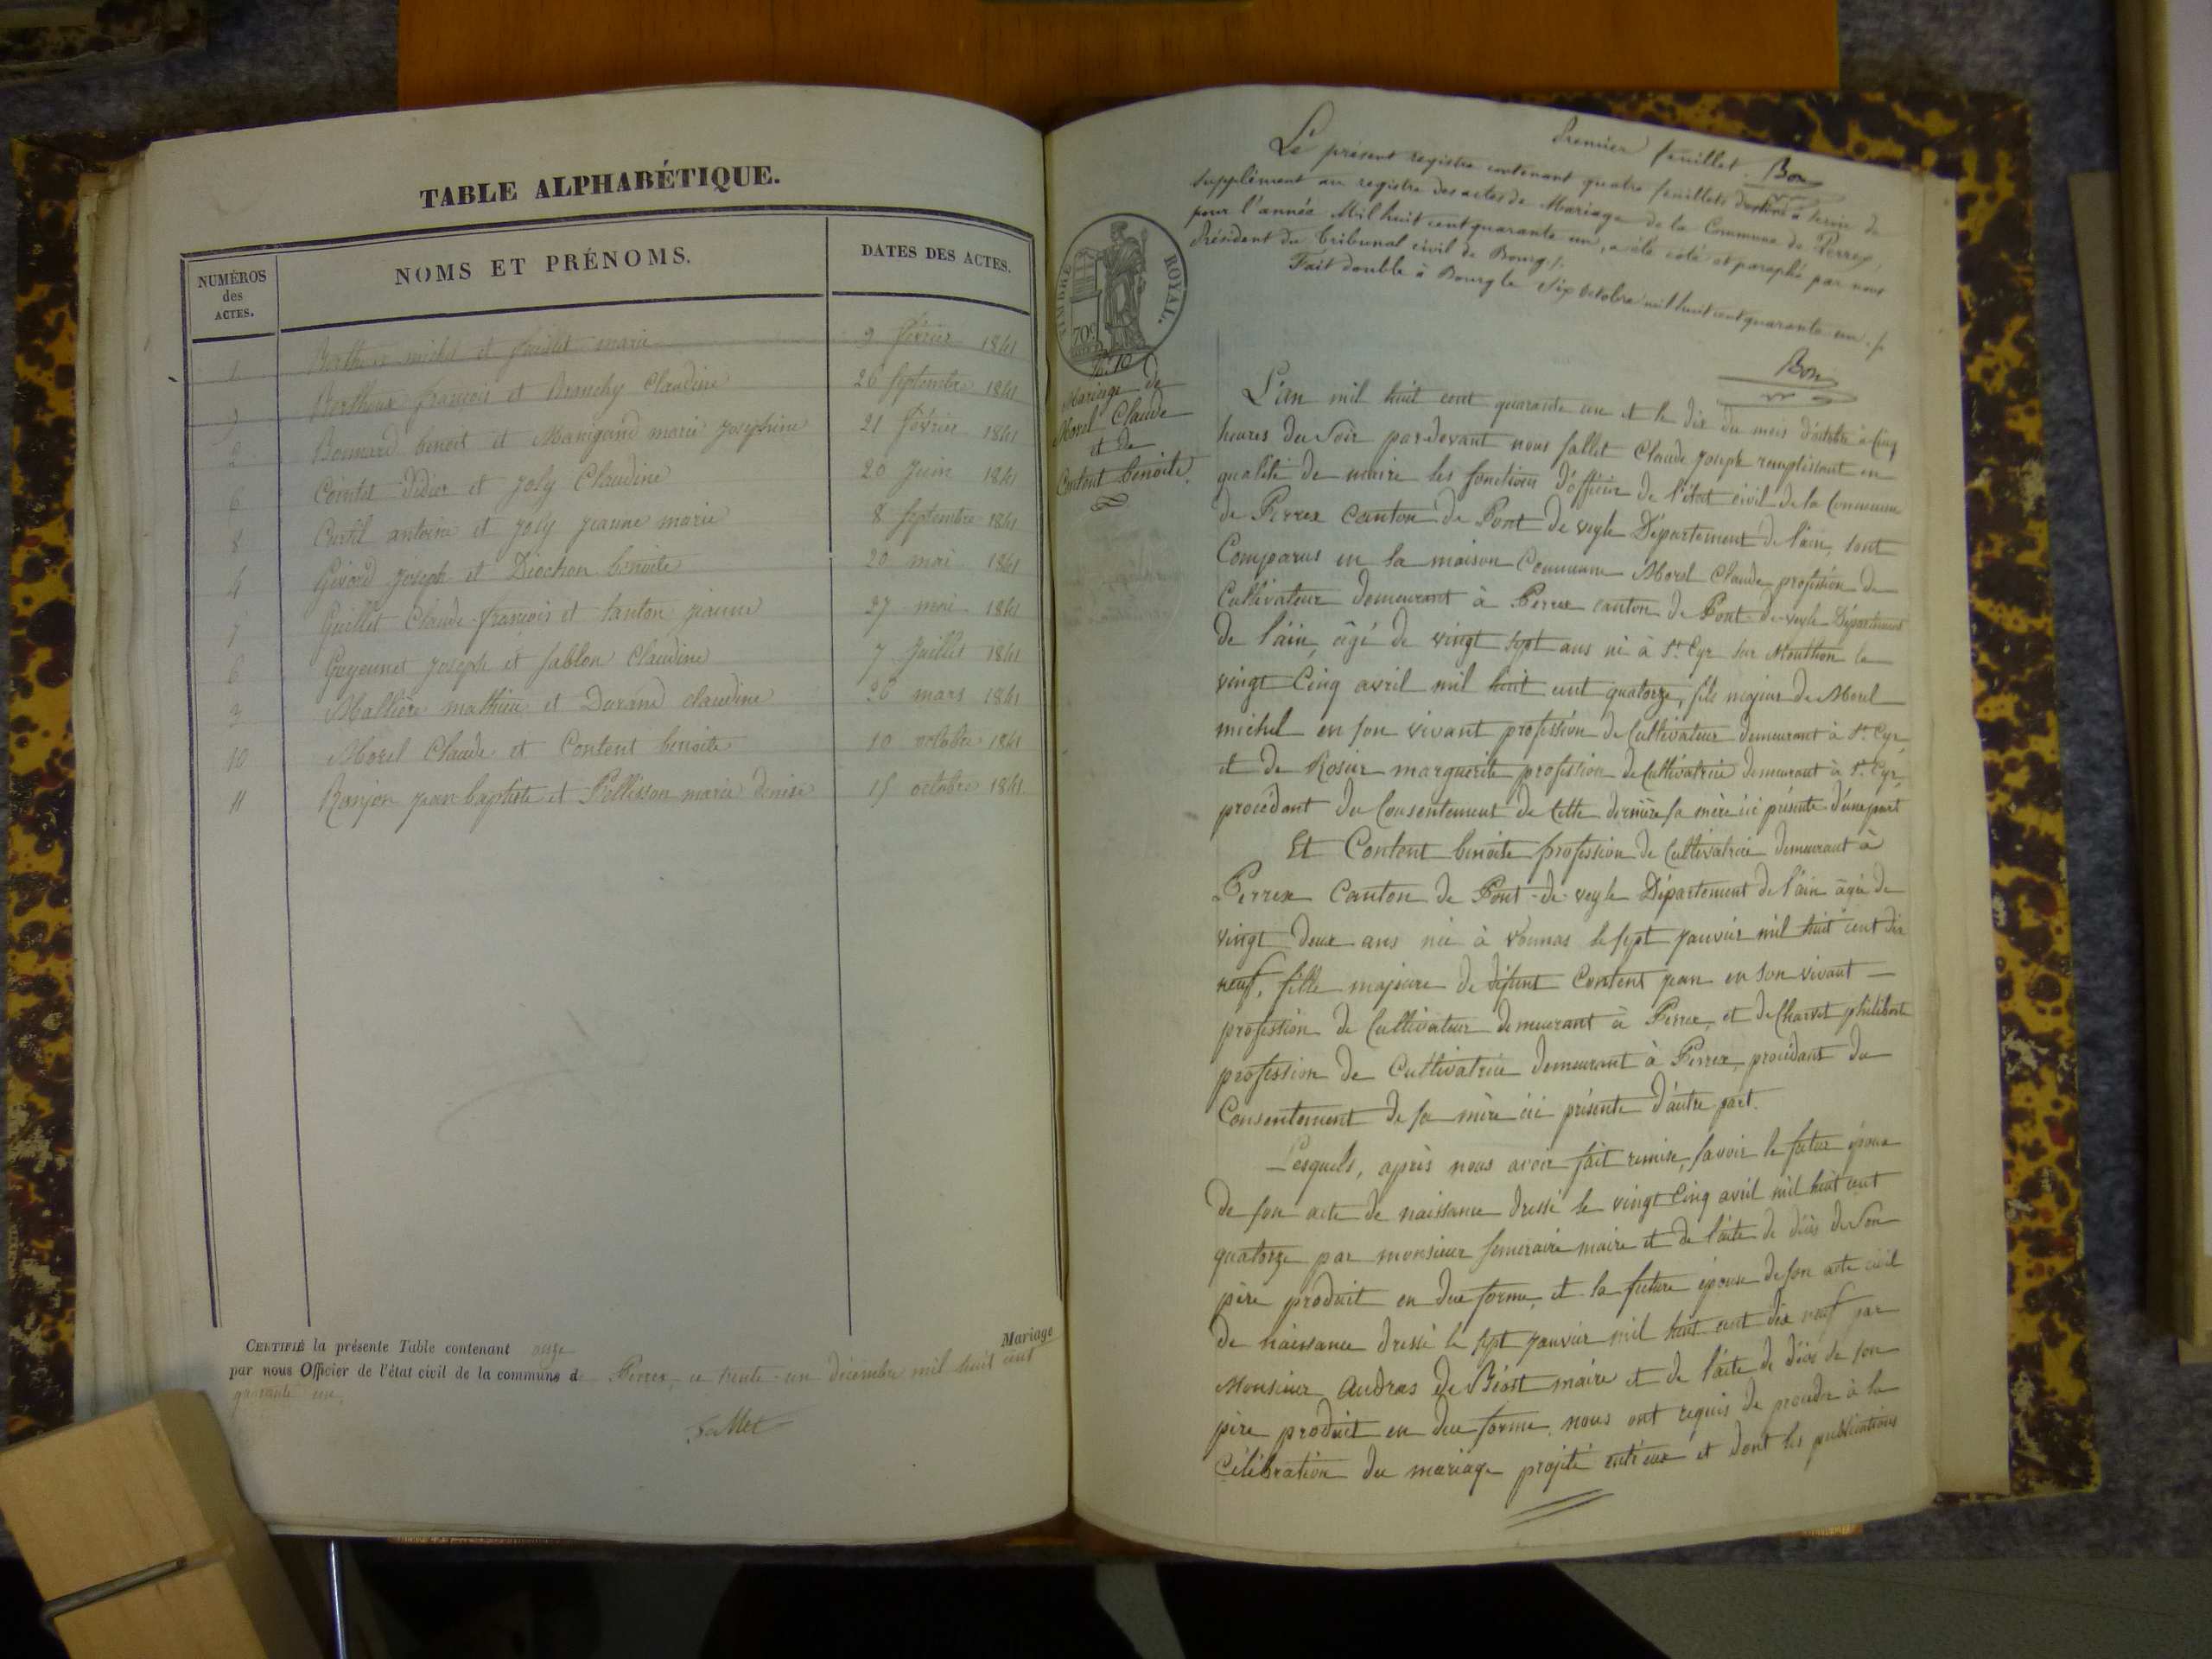 TABLE ALPHABÉTIQUE.
NUMÉROS des ACTES. NOMS ET PRÉNOMS. DATES DES ACTES.
1 michel et marie 9 février 1841
9 Berthoux françois et Brauchy Claudine 26 septembre 1841
2 Bonnard benoit et Manigand marie josephine 21 février 1841
6 Cointet Didier et joly Claudine 20 juin 1841
8 Curtil antoine et joly jeanne marie 8 septembre 1841
4 joseph et Diochon benoite 20 mai 1841
Guillet Claude-françois et tanton jeanne 27 mai 1841
6 joseph et sablon Claudine 7 juillet 1841
3 Mallière mathieu et Durand claudine 26 mars 1841
10 Morel Claude et Content benoite 10 octobre 1841
11 Ranjon jean baptiste et Pellisson marie denise 15 octobre 1841
CERTIFIÉ la présente Table contenant onze
Mariage
par nous Officier de l'état civil de la commune de Perrex, ce trente-un décembre mil huit cent
quarante un,
Sallet
Premier feuillet. Bon
Le présent registre contenant quatre feuillets destiné à servir de
supplément au registre des actes de Mariage de la Commune de Perrex,
pour l'année Mil huit cent quarante un, a été coté et paraphé par nous
Président du tribunal civil de Bourg /.
Fait double à Bourg le six octobre mil huit cent quarante un. /.
Bon
TIMBRE ROYAL.
70c
N° 10
Mariage de
Morel Claude
et de
Content benoite.
L'an mil huit cent quarante un et le dix du mois d'octobre à cinq
heures du soir par-devant nous sallet Claude joseph remplissant en
qualité de maire les fonctions d'officier de l'état civil de la Commune
de Perrex canton de Pont de veyle Département de l'ain, sont
Comparus en la maison Commune Morel Claude profession de
Cultivateur demeurant à Perrex canton de Pont-de-veyle Département
de l'ain, âgé de vingt sept ans né à St Cyr sur Menthon le
vingt cinq avril mil huit cent quatorze, fils majeur de Morel
michel en son vivant profession de Cultivateur demeurant à St Cyr
et de Rosier marguerite profession de Cultivatrice demeurant à St Cyr,
procédant du Consentement de cette dernière sa mère ici présente d'une part
Et Content benoite profession de Cultivatrice demeurant à
Perrex Canton de Pont-de-veyle Département de l'ain âgée de
vingt deux ans née à Vonnas le sept janvier mil huit cent dix
neuf, fille majeure de défunt Content jean en son vivant
profession de Cultivateur demeurant à Perrex, et de Charvet philiberte
profession de Cultivatrice demeurant à Perrex, procédant du
Consentement de sa mère ici présente d'autre part.
Lesquels, après nous avoir fait remise, savoir le futur époux
de son acte de naissance dressé le vingt cinq avril mil huit cent
quatorze par monsieur maire et de l'acte de décès de son
père produit en due forme, et la future épouse de son acte civil
de naissance dressé le sept janvier mil huit cent dix neuf par
Monsieur Audras de Béost maire et de l'acte de décès de son
père produit en due forme, nous ont requis de procéder à la
Célébration du mariage projeté entr'eux et dont les publications